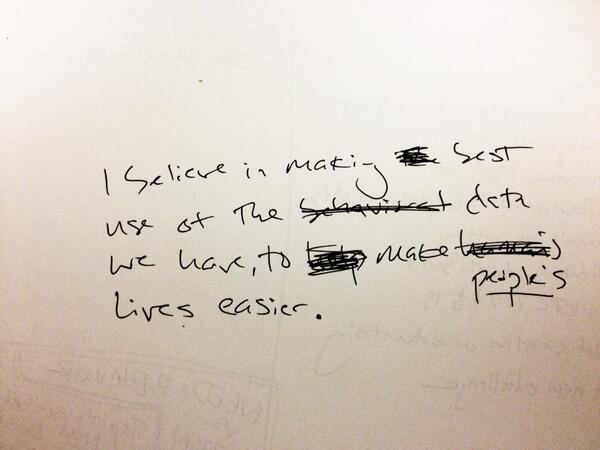 I believe in making best
use of the behavioral data
we have, to make human's
people's
lives easier.